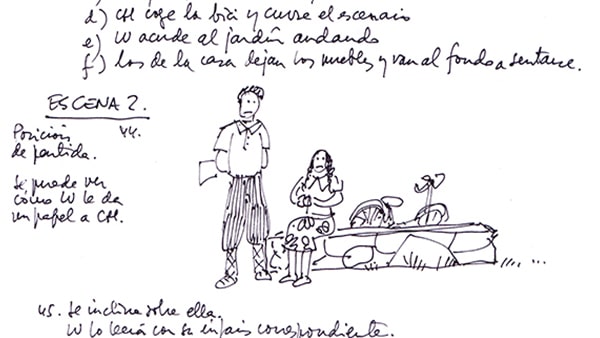 d) CH coge la bici y cruza el escenario
e) W acude al jardín andando
f) Los de la casa dejan los muebles y van al fondo a sentarse.
ESCENA 2.
44.
Posición
de partida.
Se puede ver
cómo W le da
un papel a CH.
45. Se inclina sobre ella.
W lo leerá con su correspondiente.